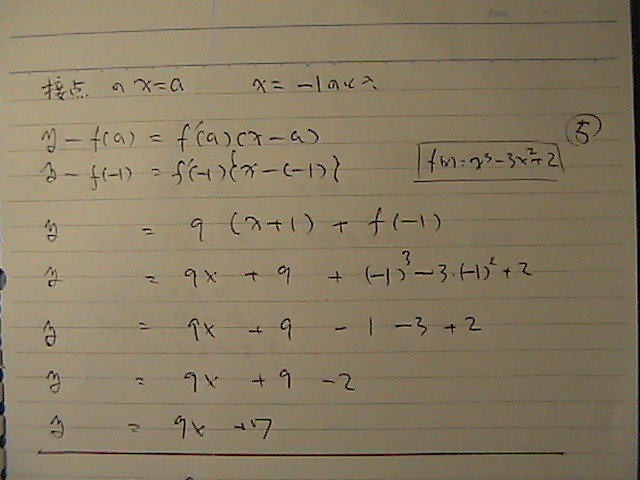 接点 の x=a x=-1のとき
y-f(a) = f'(a)(x-a)
⑤
y-f(-1) = f'(-1){x-(-1)}
f(x)=x³-3x²+2
y = 9(x+1) + f(-1)
y = 9x + 9 + (-1)³-3·(-1)²+2
y = 9x + 9 - 1 - 3 + 2
y = 9x + 9 - 2
y = 9x + 7